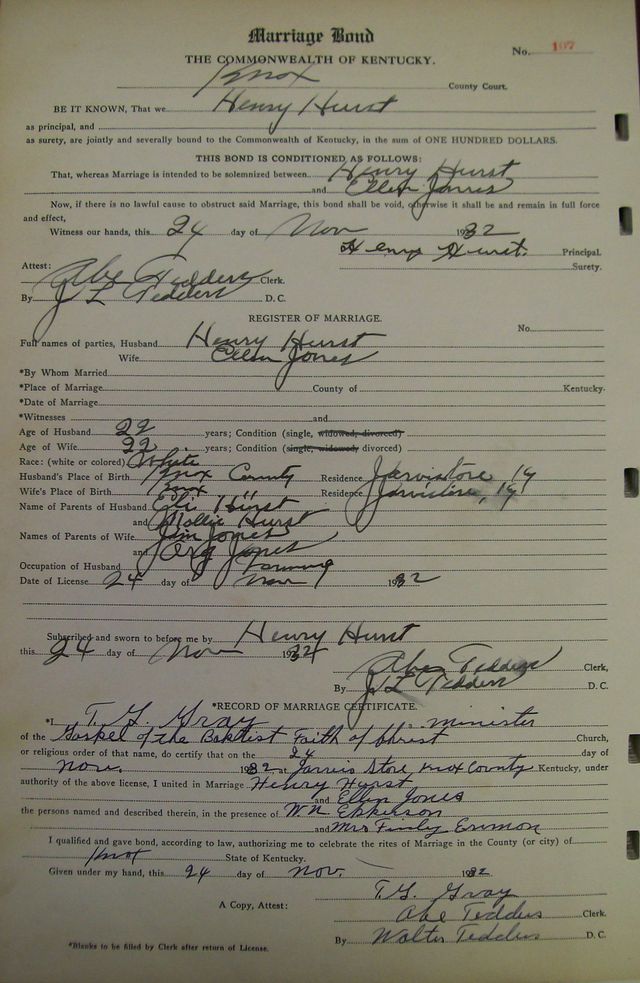 Marriage Bond
No. 107
THE COMMONWEALTH OF KENTUCKY.
Knox County Court.
BE IT KNOWN, That we Henry Hurst
as principal, and
as surety, are jointly and severally bound to the Commonwealth of Kentucky, in the sum of ONE HUNDRED DOLLARS.
THIS BOND IS CONDITIONED AS FOLLOWS:
That, whereas Marriage is intended to be solemnized between Henry Hurst
and Ellen Jones
Now, if there is no lawful cause to obstruct said Marriage, this bond shall be void, otherwise it shall be and remain in full force
and effect,
Witness our hands, this 24 day of Nov 1932
Henry Hurst. Principal.
Surety.
Attest: Abe Tedders Clerk.
By J L Tedders D. C.
REGISTER OF MARRIAGE.
No.
Full names of parties, Husband Henry Hurst
Wife Ellen Jones
*By Whom Married
*Place of Marriage County of Kentucky.
*Date of Marriage
*Witnesses and
Age of Husband 22 years; Condition (single, widowed, divorced)
Age of Wife 22 years; Condition (single, widowed, divorced)
Race: (white or colored) White
Husband's Place of Birth Knox County Residence Jarvis Store Ky
Wife's Place of Birth Knox " Residence Jarvis Store, Ky
Name of Parents of Husband Eli Hurst
and Mollie Hurst
Names of Parents of Wife Jim Jones
and Jones
Occupation of Husband Farming
Date of License 24 day of Nov 1932
Subscribed and sworn to before me by Henry Hurst
this 24 day of Nov 1932
Abe Tedders Clerk,
By J L Tedders D. C.
*RECORD OF MARRIAGE CERTIFICATE.
*I, T. G. Gray, minister
of the Gospel of the Baptist Faith of Christ Church,
or religious order of that name, do certify that on the 24 day of
Nov. 1932 at Jarvis Store Knox County Kentucky, under
authority of the above license, I united in Marriage Henry Hurst
and Ellen Jones
the persons named and described therein, in the presence of W. N.
and Mrs
I qualified and gave bond, according to law, authorizing me to celebrate the rites of Marriage in the County (or city) of
Knox State of Kentucky.
Given under my hand, this 24 day of Nov. 1932
T. G. Gray
A Copy, Attest: Abe Tedders Clerk.
By Walter Tedders D. C.
*Blanks to be filled by Clerk after return of License.